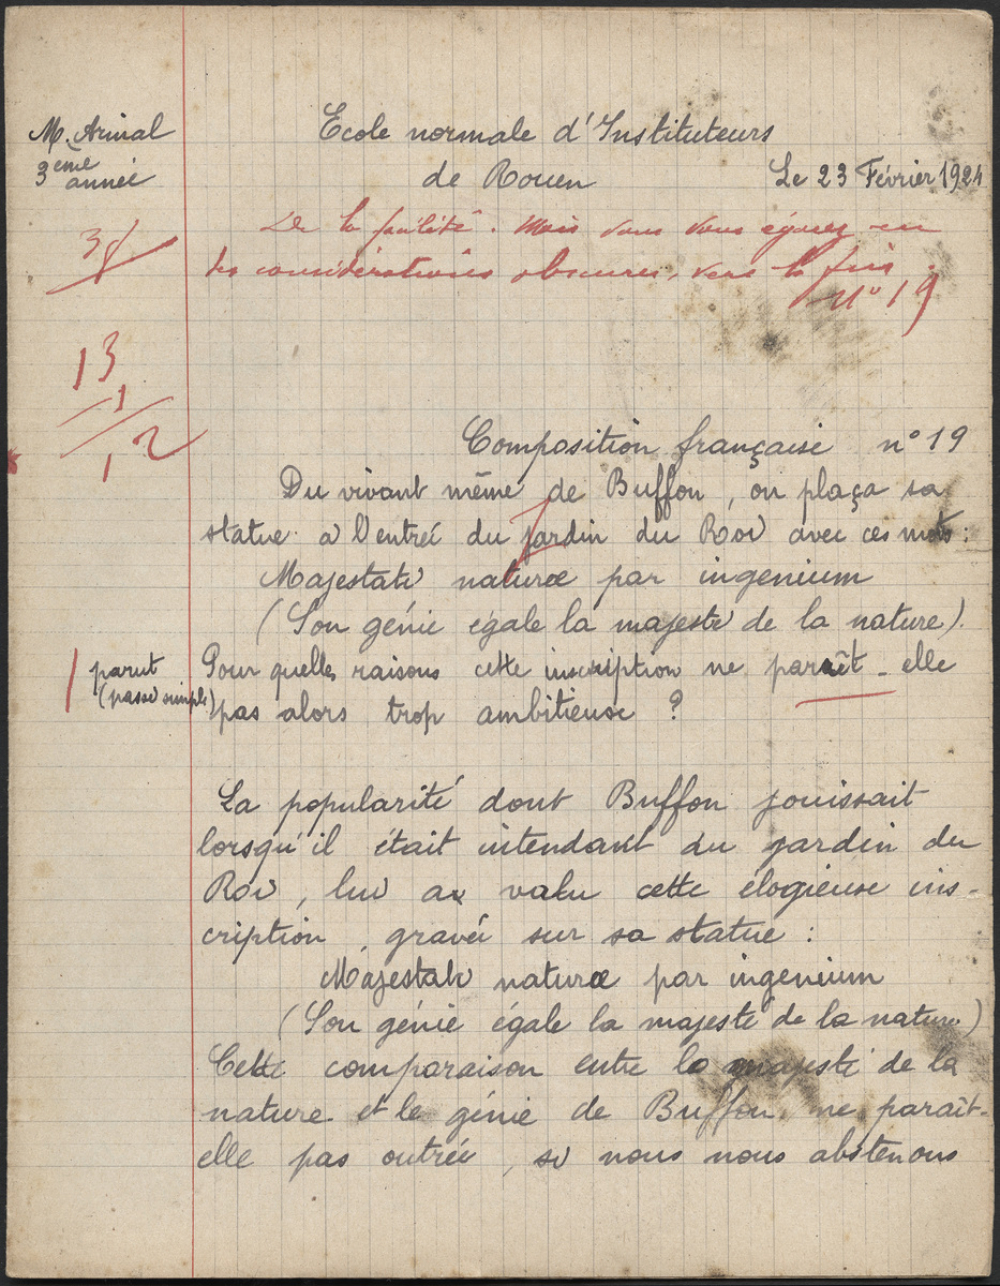 M. Arinal
3ème année
Ecole normale d'Instituteurs
de Rouen
Le 23 Février 1924
De la facilité. Mais vous vous égarez en
des considérations obscures, vers la fin.
n° 19
38
13
1
12
Composition française n° 19
Du vivant même de Buffon, on plaça sa
statue a l'entrée du jardin du Roi avec ces mots :
Majestati naturæ par ingenium
(Son génie égale la majesté de la nature).
parut
(passé simple)
Pour quelles raisons cette inscription ne paraît-elle
pas alors trop ambitieuse ?
La popularité dont Buffon jouissait
lorsqu'il était intendant du jardin du
Roi, lui a valu cette élogieuse ins-
cription, gravée sur sa statue :
Majestati naturæ par ingenium
(Son génie égale la majesté de la nature)
Cette comparaison entre la majesté de la
nature et le génie de Buffon, ne paraît-
elle pas outrée, si nous nous abstenons